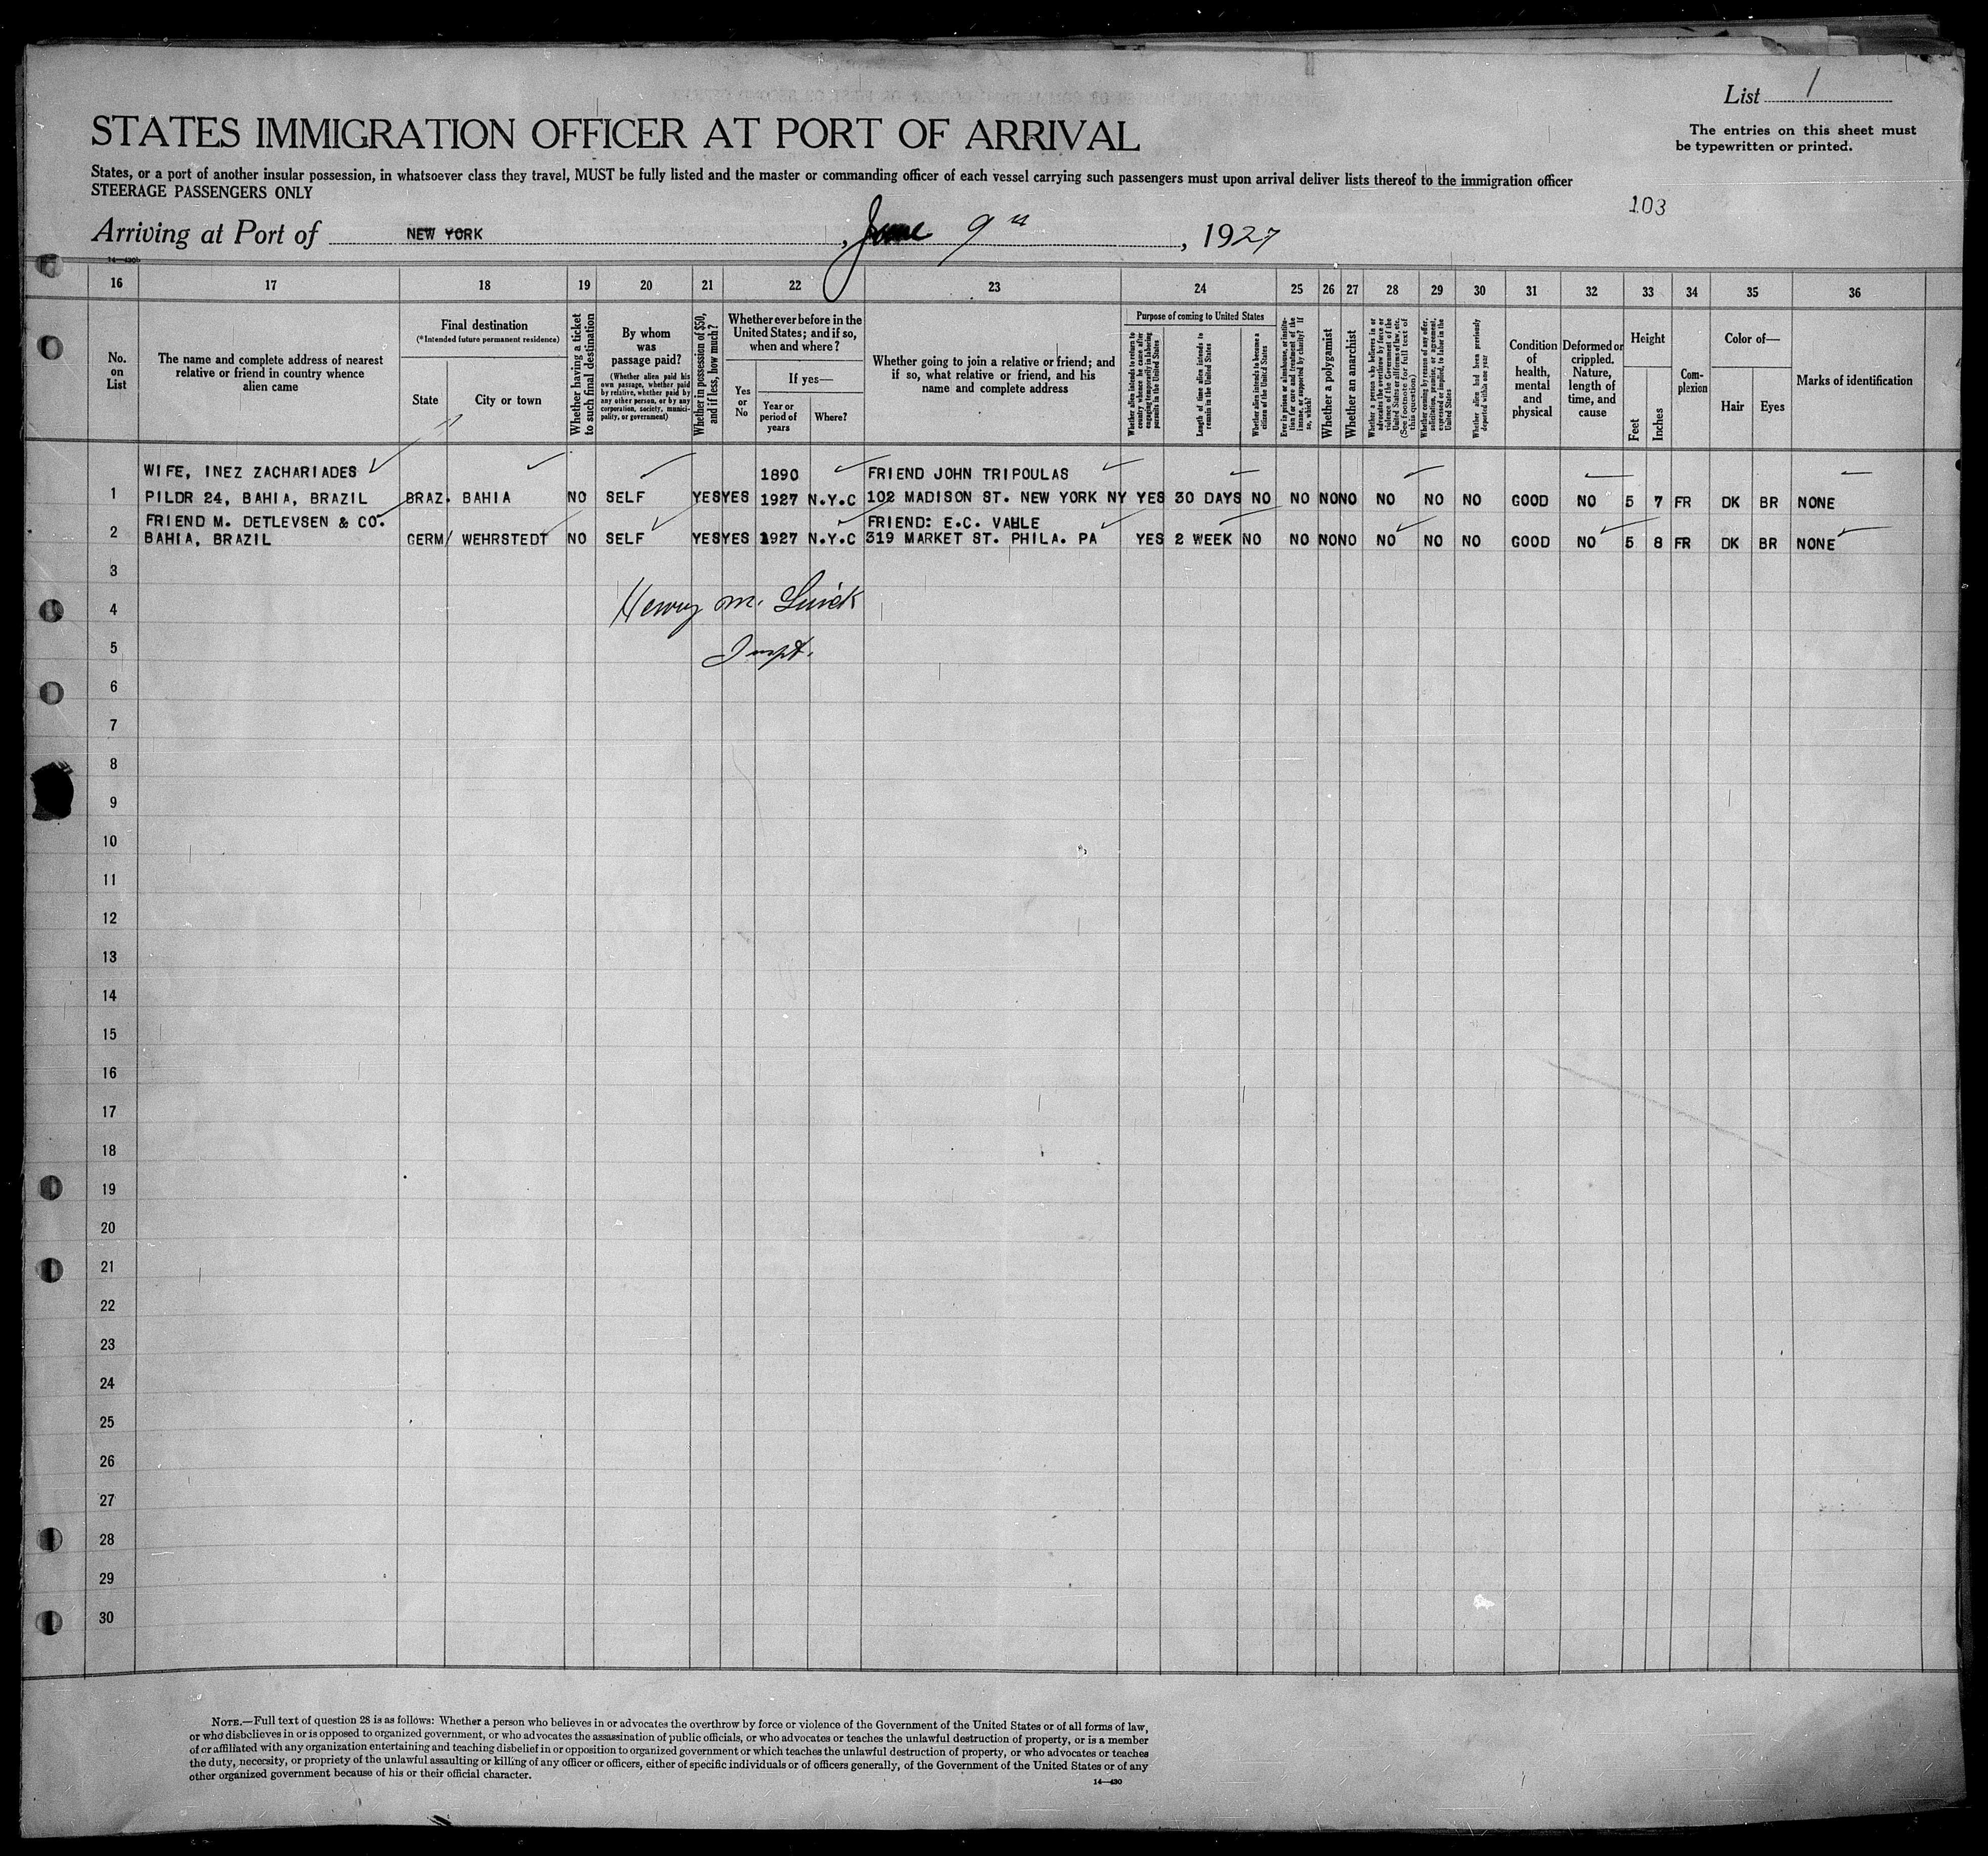 List 1
The entries on this sheet must
be typewritten or printed.
STATES IMMIGRATION OFFICER AT PORT OF ARRIVAL
States, or a port of another insular possession, in whatsoever class they travel, MUST be fully listed and the master or commanding officer of each vessel carrying such passengers must upon arrival deliver lists thereof to the immigration officer
STEERAGE PASSENGERS ONLY
103
Arriving at Port of NEW YORK, June 9th, 1927
14—430b
16 17 18 19 20 21 22 23 24 25 26 27 28 29 30 31 32 33 34 35 36
No. on List
The name and complete address of nearest relative or friend in country whence alien came
Final destination
(*Intended future permanent residence)
State
City or town
Whether having a ticket to such final destination
By whom was passage paid?
(Whether alien paid his own passage, whether paid by relative, whether paid by any other person, or by any corporation, society, municipality, or government)
Whether in possession of $50, and if less, how much?
Whether ever before in the United States; and if so, when and where?
Yes or No
If yes—
Year or period of years
Where?
Whether going to join a relative or friend; and if so, what relative or friend, and his name and complete address
Purpose of coming to United States
Whether alien intends to return to country whence he came after engaging temporarily in laboring pursuits in the United States
Length of time alien intends to remain in the United States
Whether alien intends to become a citizen of the United States
Ever in prison or almshouse, or institution for care and treatment of the insane, or supported by charity? If so, which?
Whether a polygamist
Whether an anarchist
Whether a person who believes in or advocates the overthrow by force or violence of the Government of the United States or all forms of law, etc. (See footnote for full text of this question)
Whether coming by reason of any offer, solicitation, promise, or agreement, expressed or implied, to labor in the United States
Whether alien had been previously deported within one year
Condition of health, mental and physical
Deformed or crippled. Nature, length of time, and cause
Height
Feet
Inches
Complexion
Color of—
Hair
Eyes
Marks of identification
WIFE, INEZ ZACHARIADES 1890 FRIEND JOHN TRIPOULAS
1 PILDR 24, BAHIA, BRAZIL BRAZ. BAHIA NO SELF YES YES 1927 N.Y.C 102 MADISON ST. NEW YORK NY YES 30 DAYS NO NO NO NO NO NO NO GOOD NO 5 7 FR DK BR NONE
FRIEND M. DETLEVSEN & CO. FRIEND: E.C. VAHLE
2 BAHIA, BRAZIL GERM/ WEHRSTEDT NO SELF YES YES 1927 N.Y.C 319 MARKET ST. PHILA. PA YES 2 WEEK NO NO NO NO NO NO NO GOOD NO 5 8 FR DK BR NONE
3
4 Henry M.
5 Inspt.
6
7
8
9
10
11
12
13
14
15
16
17
18
19
20
21
22
23
24
25
26
27
28
29
30
NOTE.—Full text of question 28 is as follows: Whether a person who believes in or advocates the overthrow by force or violence of the Government of the United States or of all forms of law,
or who disbelieves in or is opposed to organized government, or who advocates the assassination of public officials, or who advocates or teaches the unlawful destruction of property, or is a member
of or affiliated with any organization entertaining and teaching disbelief in or opposition to organized government or which teaches the unlawful destruction of property, or who advocates or teaches
the duty, necessity, or propriety of the unlawful assaulting or killing of any officer or officers, either of specific individuals or of officers generally, of the Government of the United States or of any
other organized government because of his or their official character.
14—430